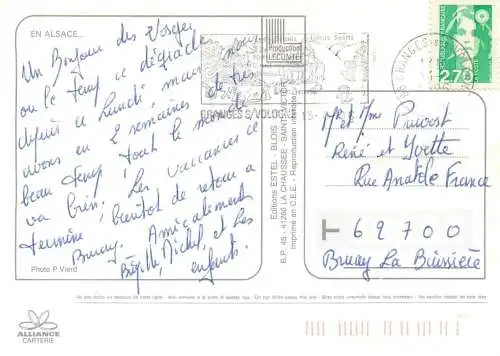 EN ALSACE...
Un Bonjour des Vosges
ou le temps se dégrade
depuis ce Lundi, mais nous
avons eu 2 semaines de très
beau temps, tout le monde
va bien. Les vacances se
termine, bientot de retour a
Bruay. Amicalement
Brigitte, Michel, et les
enfants.
Photo P. Viard
ALLIANCE
CARTERIE
Production
LECONTE
GRANGES S/VOLOGNE
Editions ESTEL - BLOIS
B.P. 45 - 41260 LA CHAUSSEE-SAINT-VICTOR
Imprimé en C.E.E. - Reproduction
2,70
Mr et Mme Pruvost
René et Yvette
Rue Anatole France
T 62700
Bruay La Buissière